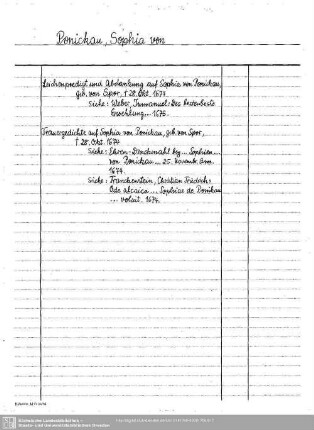 Ponickau, Sophia von
Leichenpredigt und Abdankung auf Sophia von Ponickau,
geb. von Spor, † 28. Okt. 1674.
Siehe: Weber, Immanuel: Des
Erwehlung ... 1675.
Trauergedichte auf Sophia von Ponickau, geb. von Spor,
† 28. Okt. 1674
Siehe: Ehren-Denckmahl bey ... Sophien ...
von Ponickau ... 25. Novemb. Ann.
1674.
Siehe: Franckenstein, Christian Friedrich:
Ode alcaica ... Sophiae de Ponikau
... voluit. 1674.